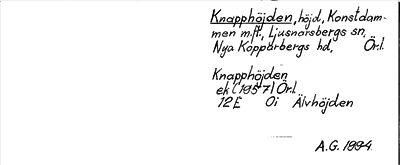 Knapphöjden, höjd, Konstdam-
men m.fl., Ljusnarsbergs sn,
Nya Kopparbergs hd, Ör.l.
Knapphöjden
ek (1957) Ör.l.
12E 0i Älvhöjden
A.G. 1994